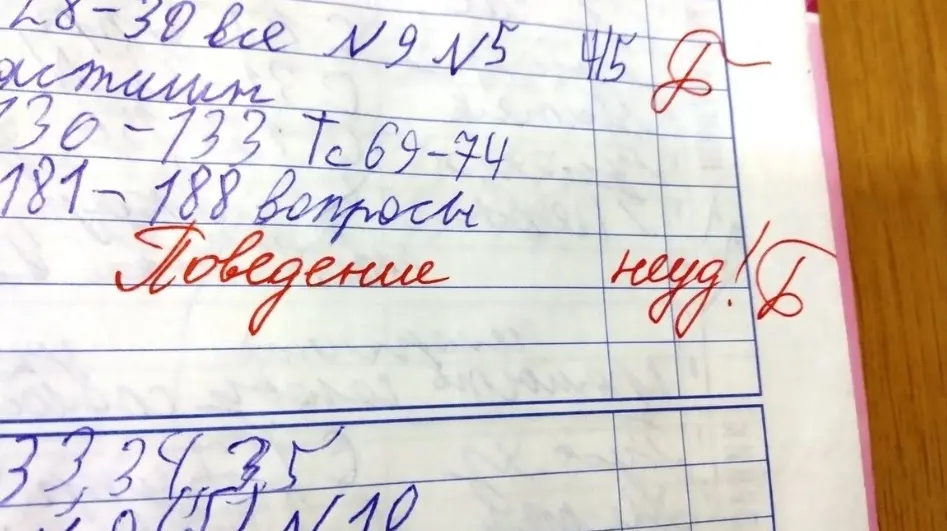 28-30 все №9 №5 4/5 Б
130-133 Тс 69-74
181-188 вопросы
Поведение неуд! Б
33, 34, 35
№10